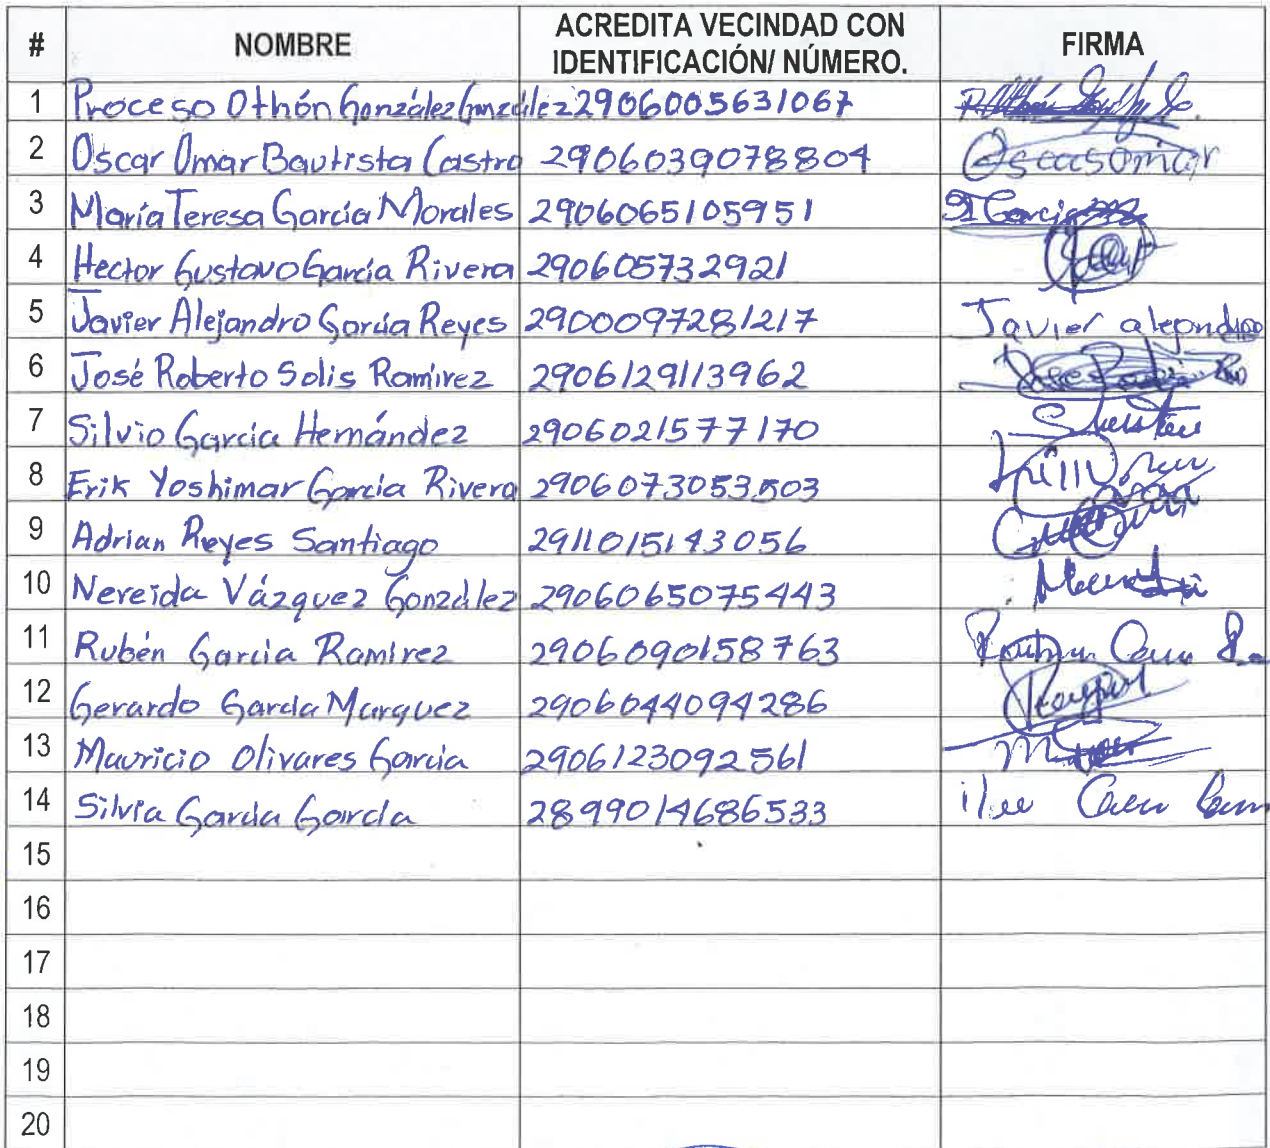 # NOMBRE ACREDITA VECINDAD CON IDENTIFICACIÓN/ NÚMERO. FIRMA
1 Proceso Othón González González 2906005631067
2 Oscar Omar Bautista Castro 2906039078804 Oscarsomar
3 María Teresa García Morales 2906065105951
4 Hector Gustavo García Rivera 290605732921
5 Javier Alejandro García Reyes 2900097281217 Javier
6 José Roberto Solis Ramírez 2906129113962
7 Silvio García Hernández 2906021577170
8 Erik Yoshimar García Rivera 2906073053503
9 Adrian Reyes Santiago 2911015143056
10 Nereida Vázquez González 2906065075443
11 Rubén García Ramírez 2906090158763
12 Gerardo García Marquez 2906044094286
13 Mauricio Olivares García 2906123092561
14 Silvia García García 2899014686533
15
16
17
18
19
20